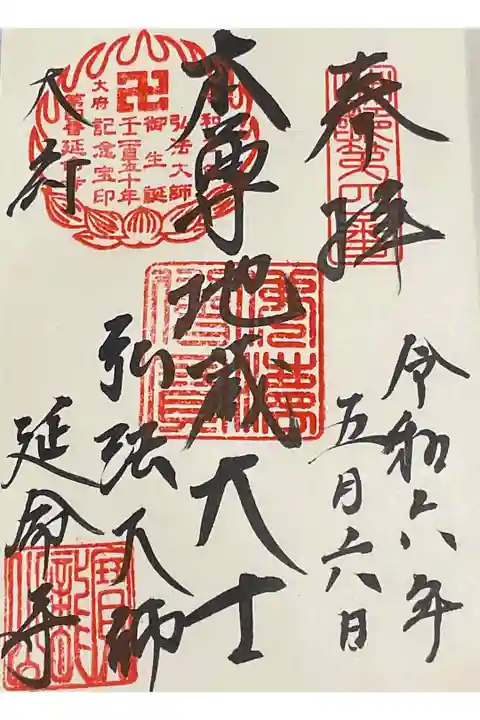 奉拝
令和六年
五月六日
本尊地蔵大士
弘法大師
大府
延命寺
弘法大師
御生誕
千二百五十年
記念宝印
大府